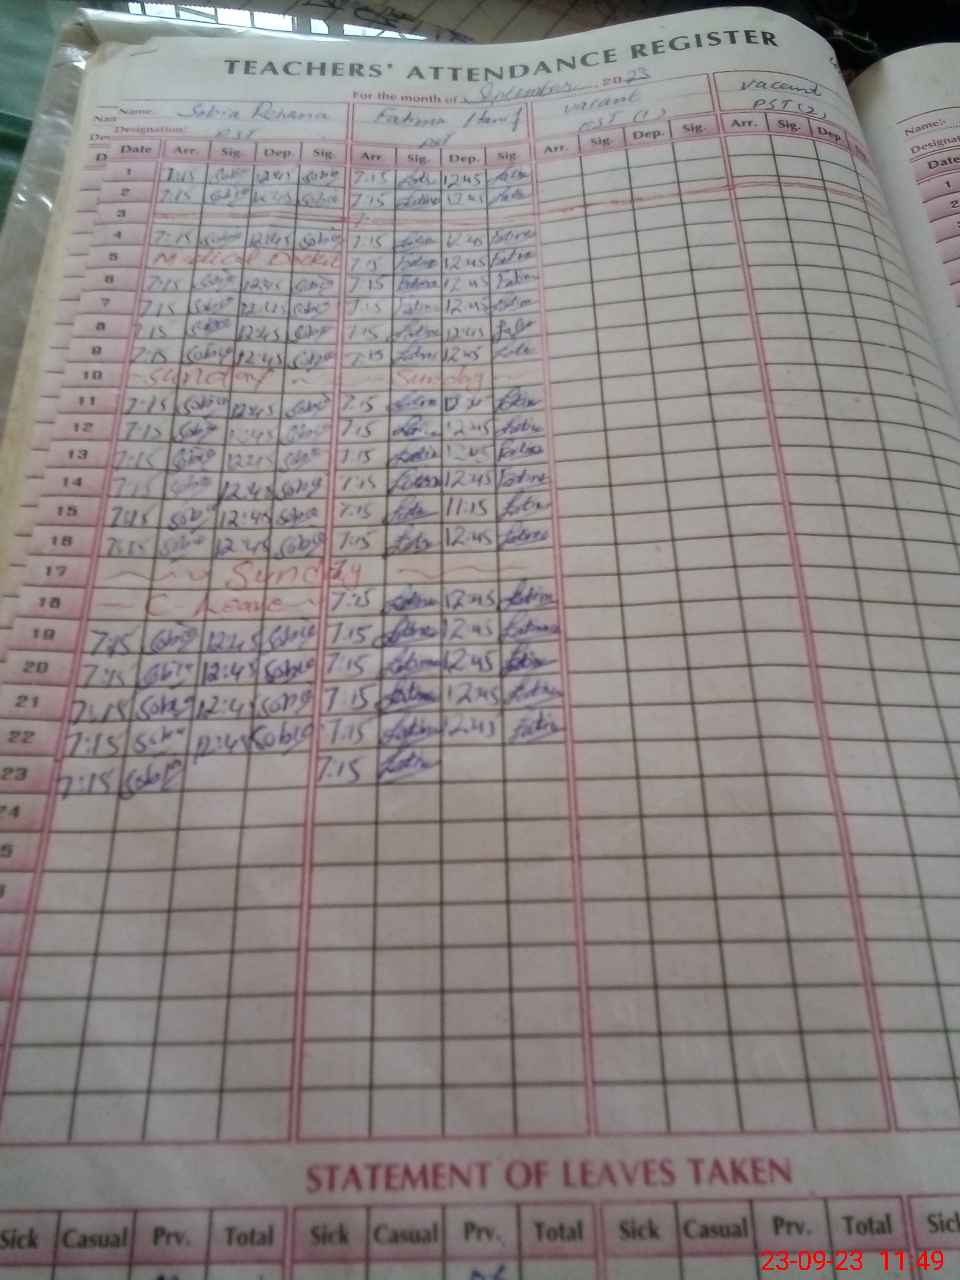 TEACHERS' ATTENDANCE REGISTER
For the month of September 2023
Name. Sobia Rehana Fatima Hanif vacant vacant
Designation: PST PST PST (1) PST (2)
Date Arr. Sig. Dep. Sig. Arr. Sig. Dep. Sig. Arr. Sig. Dep. Sig. Arr. Sig. Dep.
1 7:15 Sobia 12:45 Sobia 7:15 Fatima 12:45 Fatima
2 7:15 Sobia 12:45 Sobia 7:15 Fatima 12:45 Fatima
3
4 7:15 Sobia 12:45 Sobia 7:15 Fatima 12:45 Fatima
5 Medical 7:15 Fatima 12:45 Fatima
6 7:15 Sobia 12:45 Sobia 7:15 Fatima 12:45 Fatima
7 7:15 Sobia 12:45 Sobia 7:15 Fatima 12:45 Fatima
8 7:15 Sobia 12:45 Sobia 7:15 Fatima 12:45 Fatima
9 7:15 Sobia 12:45 Sobia 7:15 Fatima 12:45 Fatima
10 Sunday Sunday
11 7:15 Sobia 12:45 Sobia 7:15 Fatima Fatima
12 7:15 Sobia 12:45 Sobia 7:15 Fatima 12:45 Fatima
13 7:15 Sobia 12:45 Sobia 7:15 Fatima 12:45 Fatima
14 7:15 Sobia 12:45 Sobia 7:15 Fatima 12:45 Fatima
15 7:15 Sobia 12:45 Sobia 7:15 Fatima 11:15 Fatima
16 7:15 Sobia 12:45 Sobia 7:15 Fatima 12:45 Fatima
17 Sunday
18 C. Leave 7:15 Fatima 12:45 Fatima
19 7:15 Sobia 12:45 Sobia 7:15 Fatima 12:45 Fatima
20 7:15 Sobia 12:45 Sobia 7:15 Fatima 12:45 Fatima
21 7:15 Sobia 12:45 Sobia 7:15 Fatima 12:45 Fatima
22 7:15 Sobia 12:45 Sobia 7:15 Fatima 12:45 Fatima
23 7:15 Sobia 7:15 Fatima
24
STATEMENT OF LEAVES TAKEN
Sick Casual Prv. Total Sick Casual Prv. Total Sick Casual Prv. Total
Name:
Date
1
2
23-09-23 11:49